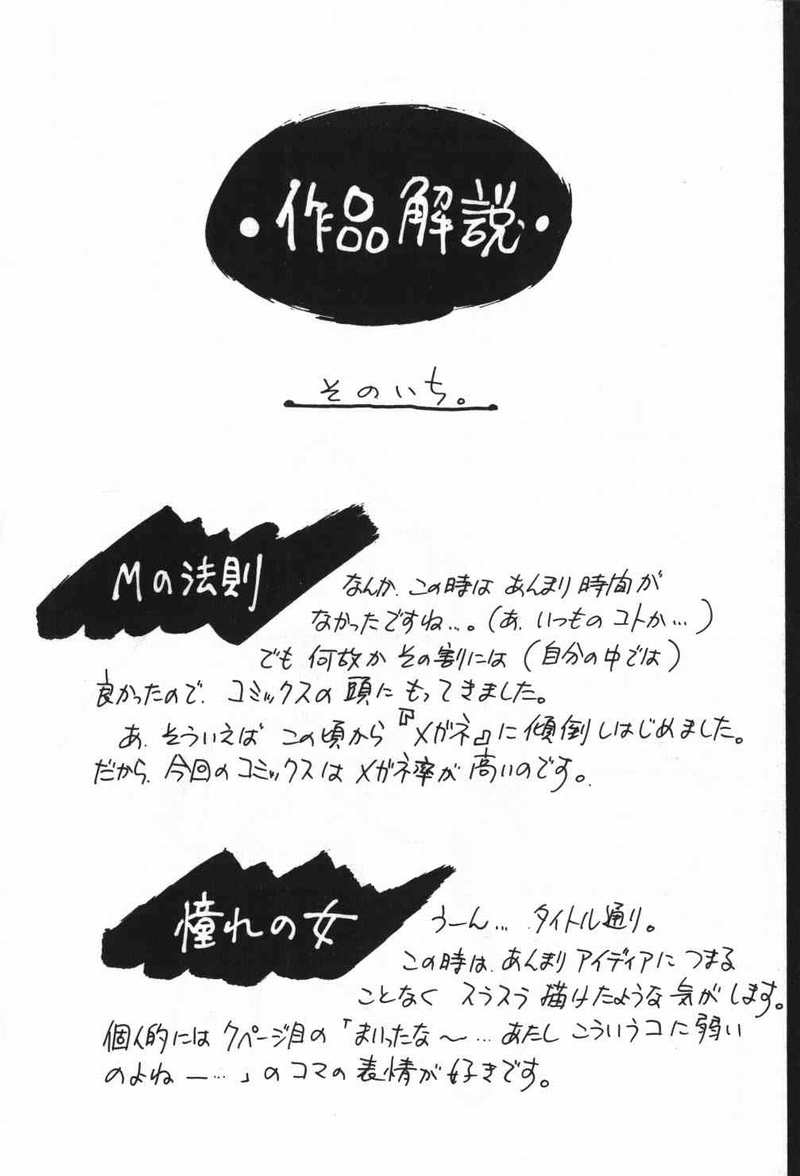 ・作品解説・
そのいち。
Mの法則
なんか、この時は あんまり時間が
なかったですね…。(あ、いつものコトか…)
でも 何故か その割には (自分の中では)
良かったので、コミックスの頭に もってきました。
あ、そういえば この頃から『メガネ』に傾倒しはじめました。
だから、今回のコミックスは メガネ率が 高いのです。
憧れの女
うーん… タイトル通り。
この時は、あんまり アイディアに つまる
ことなく スラスラ 描けたような 気が します。
個人的には 7ページ目の「まいったな〜…あたし こういうコに弱い
のよねー…」の コマの 表情が 好きです。